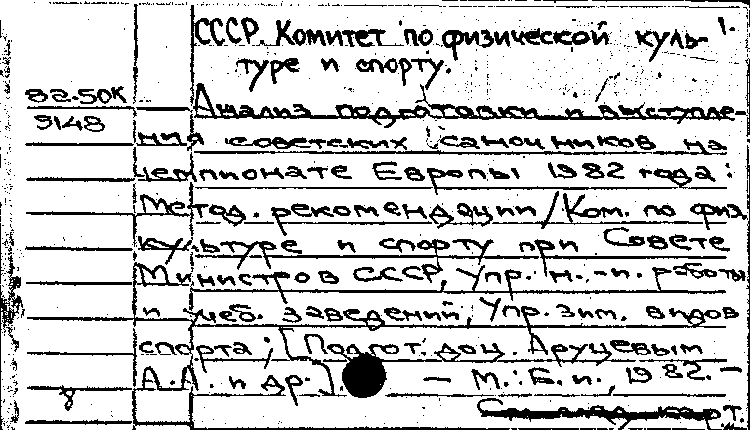 СССР. Комитет по физической куль- 1.
туре и спорту.
82.50К
9148
Анализ подготовки и выступле-
ния советских саночников на
чемпионате Европы 1982 года:
Метод. рекомендации / Ком. по физ.
культуре и спорту при Совете
Министров СССР, Упр. н.-и. работы
и учеб. заведений, Упр. зим. видов
спорта; [Подгот. доц. Друцевым
А.А. и др.]. — М.: Б.и., 1982. —
т.